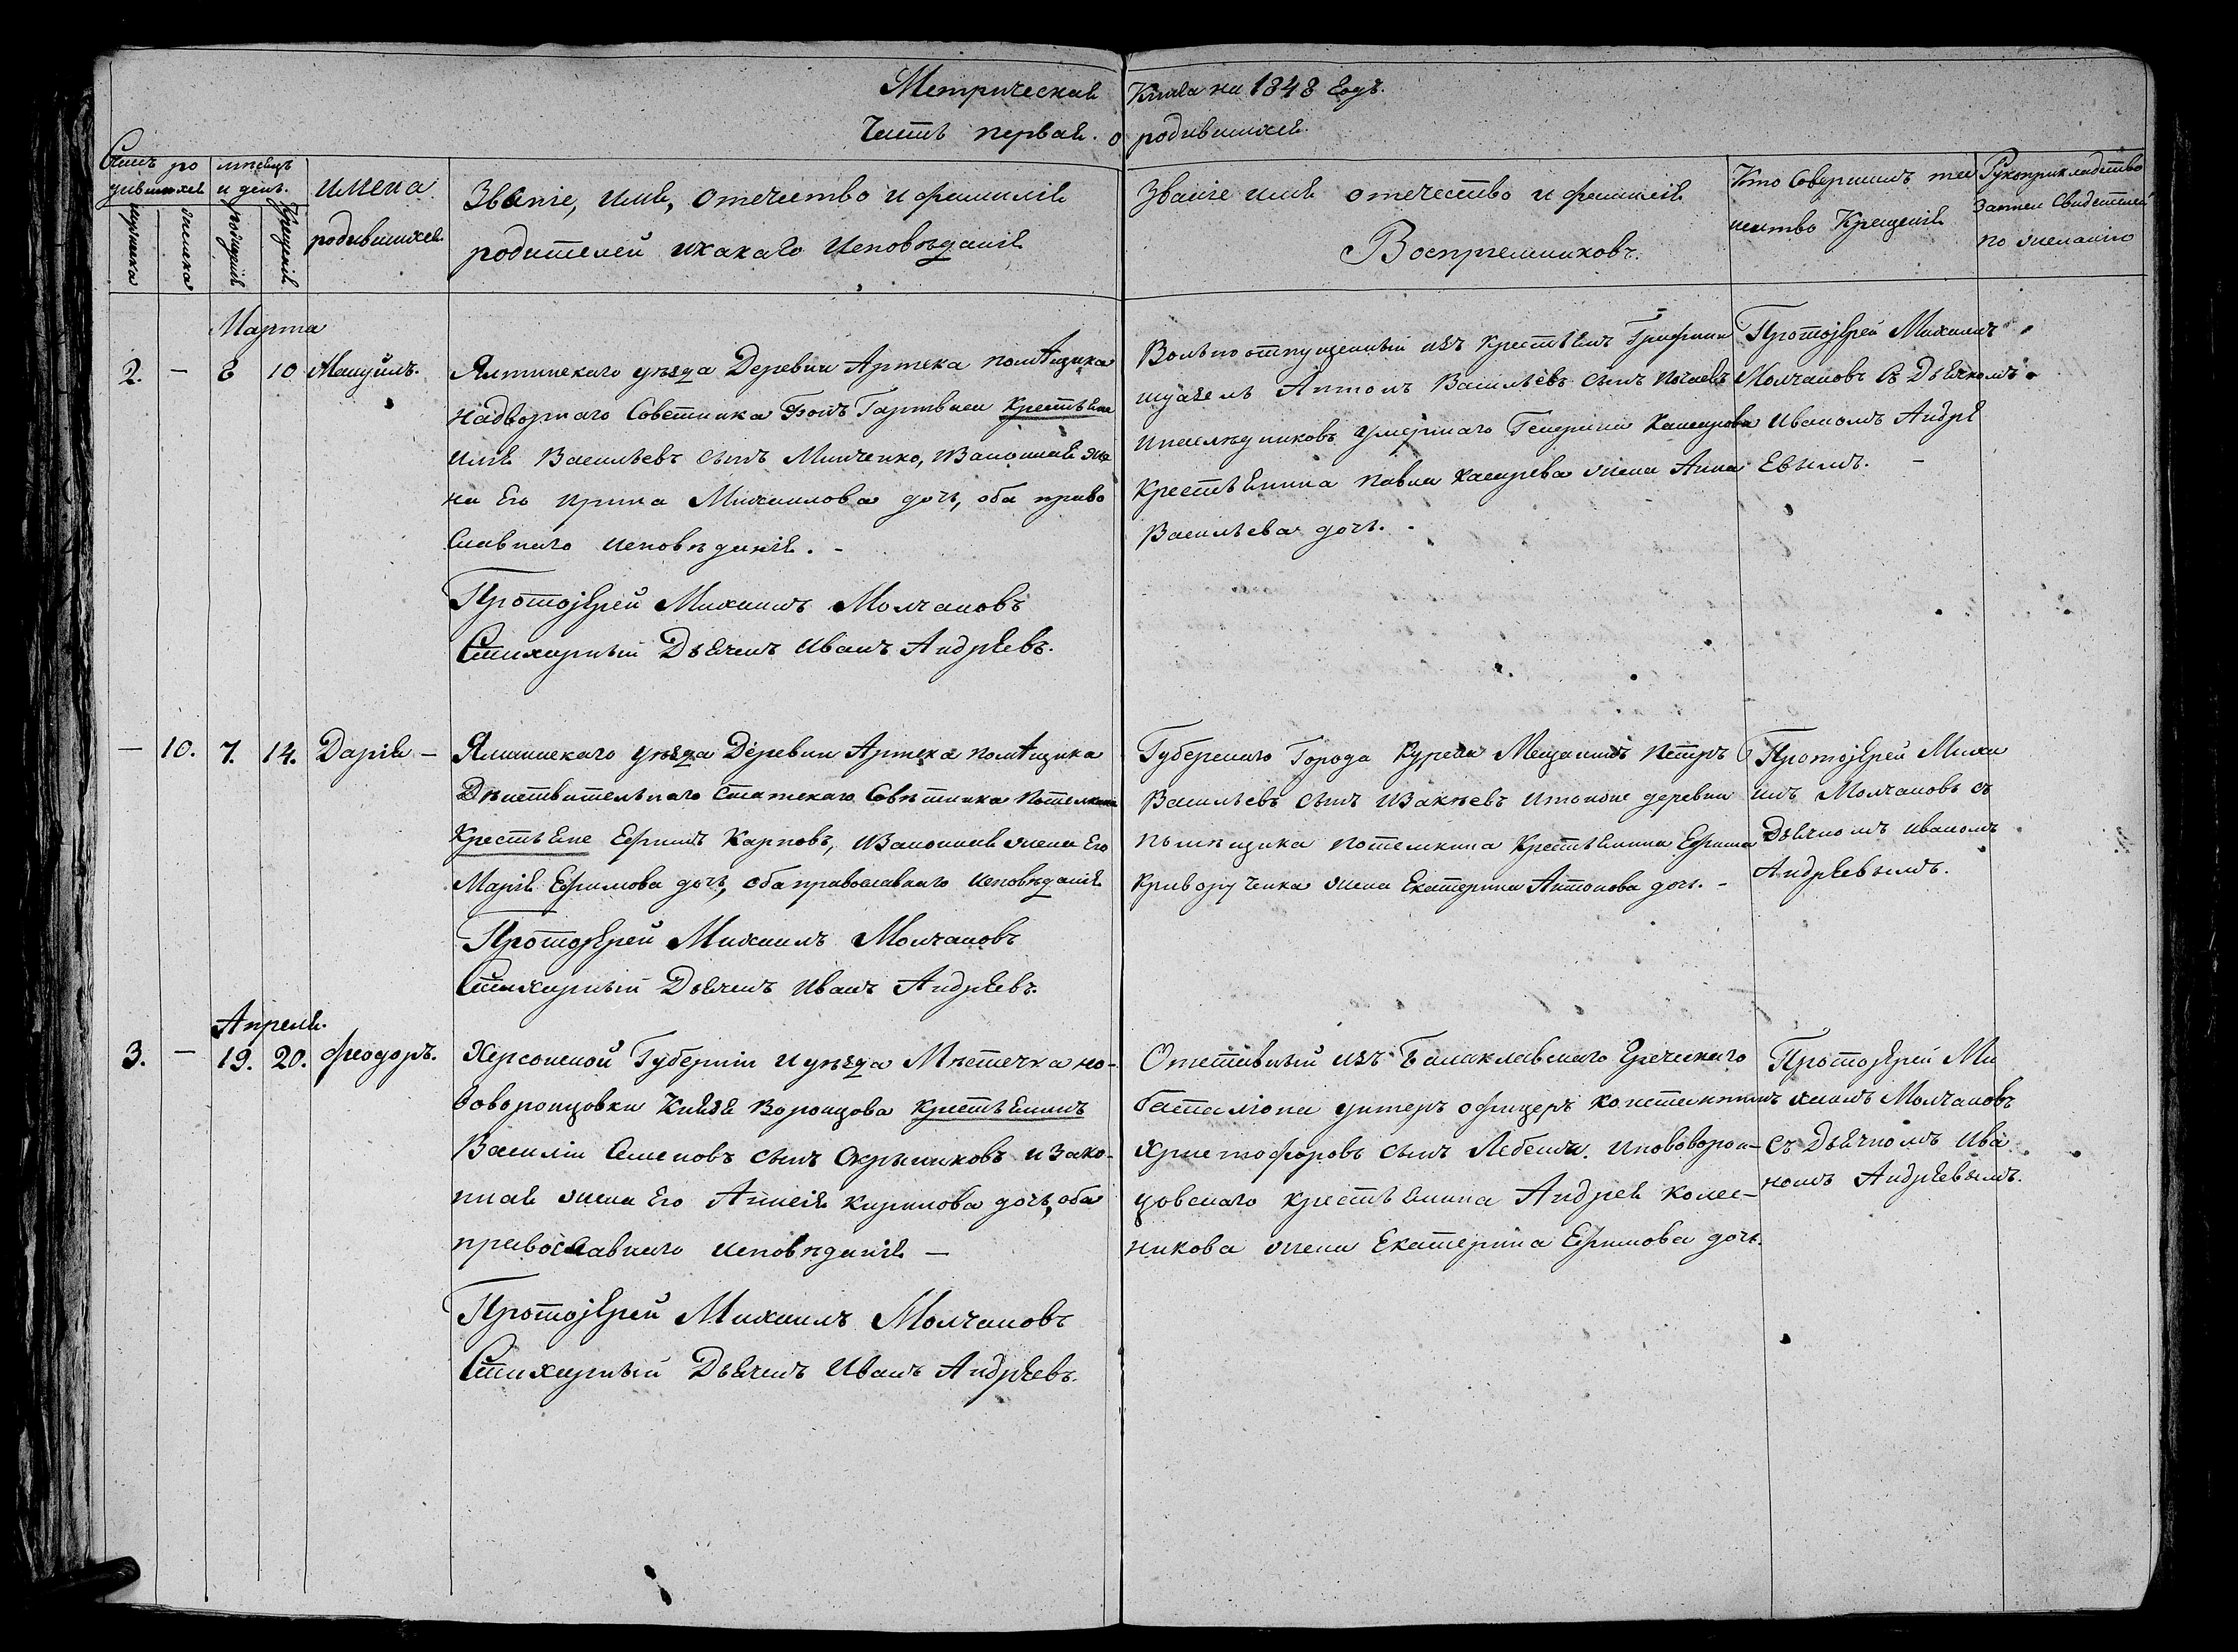 Метрическая Книга на 1848 Годъ.
Часть первая. о родившихся.
Счетъ ро
дившихся
мужеска
женска
мѣсяцъ
и день.
рождения
Крещенія
имена
родившихся
Званіе, имя, отечество и фамилія
родителей икакаго исповѣданія
Званіе имя отечество и фамилія
Воспріемниковъ.
Кто Совершилъ таи
инство Крещенія
Рукоприкладство
Записи Свидетелей
по желанію
Марта
2. — 8 10 Мануйлъ.
Ялтинскаго уѣзда Деревни Артека помѣщика
надворнаго Советника Фонъ Гартвиси крестьяне
Илія Васильевъ сынъ Минченко, изаконная же
на Его ирина Михаилова дочь, оба право
славнаго исповѣданія. -
Протоіерей Михаилъ Молчановъ
Стихарный Дьячекъ Иванъ Андреевъ.
Вольноотпущенный изъ крестьянъ
Антонъ Васильевъ сынъ
инаслѣдниковъ умершаго Генерала
крестьянина павла жена Анна
Васильева дочь. -
Протоіерей Михаилъ
Молчановъ съ Дьячкомъ
Иваномъ Андре
Евымъ. -
— 10. 7. 14. Дарія —
Ялтинскаго уѣзда Деревни Артека помѣщика
Дѣйствительнаго Статскаго Совѣтника Потемкина
Крестьяне Ефимъ Карповъ, изаконная жена Его
Марія Ефимова дочь, оба православнаго исповѣданія
Протоіерей Михаилъ Молчановъ
Стихарный Дьячекъ Иванъ Андреевъ.
Губернскаго Города Курска Мещанинъ петръ
Васильевъ сынъ итойже деревни
помѣщика потемкина Крестьянина Ефима
Криворученка жена Екатерина Антонова дочь. -
Протоіерей Миха
илъ Молчановъ съ
Дьячкомъ иваномъ
Андреевымъ.
Апреля.
3. — 19. 20. феодоръ.
Херсонской Губерніи и уѣзда Мѣстечка но-
воворонцовки Князя Воронцова крестьянинъ
Василій Семеновъ сынъ изако-
нная жена Его Кирилова дочь, оба
православнаго исповѣданія —
Протоіерей Михаилъ Молчановъ
Стихарный Дьячекъ Иванъ Андреевъ.
Отставный изъ Балаклавскаго Греческаго
баталіона унтеръ офицеръ константинъ
Христофоровъ сынъ иновворон-
цовскаго крестьянина Андрея колес-
никова жена Екатерина Ефимова дочь.
Протоіерей Ми
хаилъ Молчановъ
съ Дьячкомъ Ива
номъ Андреевымъ.